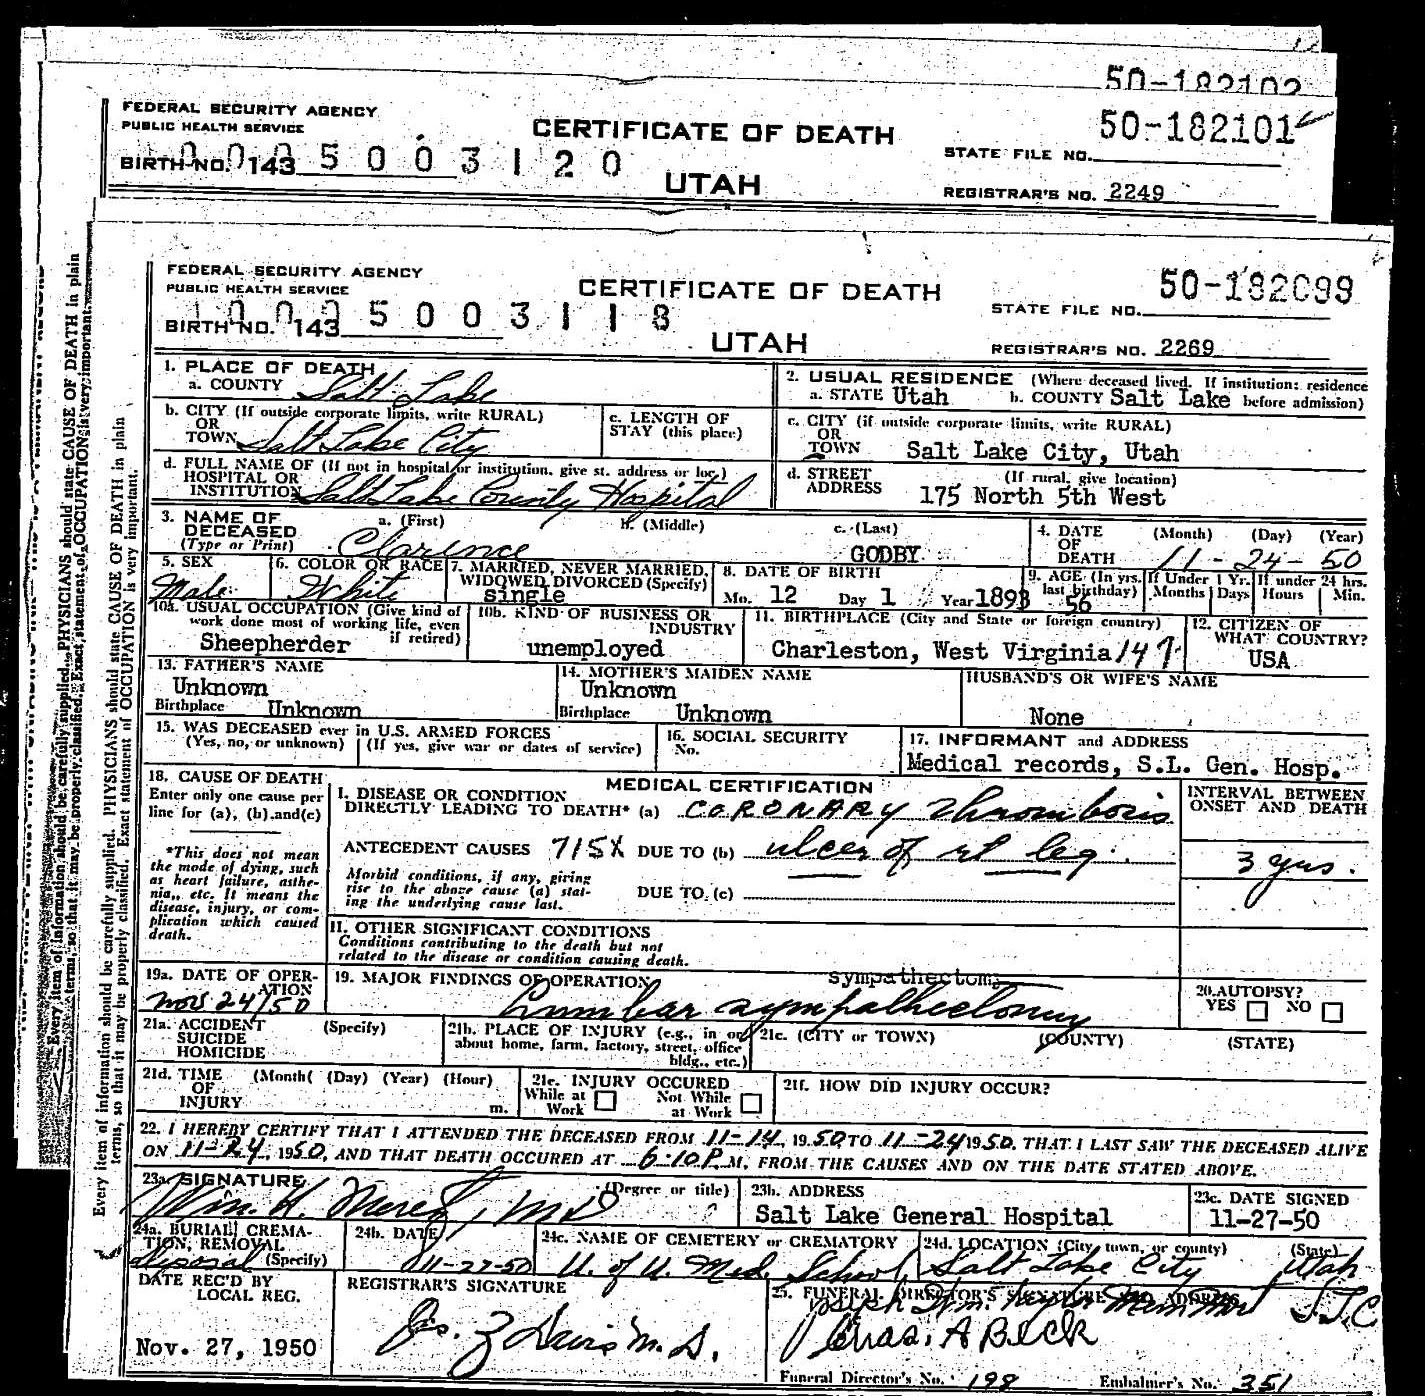 50-182102
FEDERAL SECURITY AGENCY
PUBLIC HEALTH SERVICE
CERTIFICATE OF DEATH
50-182101
STATE FILE NO.
BIRTH NO. 143
5 0 0 3 1 2 0
UTAH
REGISTRAR'S NO. 2249
FEDERAL SECURITY AGENCY
PUBLIC HEALTH SERVICE
CERTIFICATE OF DEATH
50-182099
STATE FILE NO.
BIRTH NO. 143
5 0 0 3 1 1 8
UTAH
REGISTRAR'S NO. 2269
Every item of information should be carefully supplied. PHYSICIANS should state CAUSE OF DEATH in plain
terms, so that it may be properly classified. Exact statement of OCCUPATION is very important.
Every item of information should be carefully supplied. PHYSICIANS should state CAUSE OF DEATH in plain
terms, so that it may be properly classified. Exact statement of OCCUPATION is very important.
1. PLACE OF DEATH
a. COUNTY Salt Lake
2. USUAL RESIDENCE (Where deceased lived. If institution: residence
a. STATE Utah b. COUNTY Salt Lake before admission)
b. CITY (If outside corporate limits, write RURAL)
OR
TOWN Salt Lake City
c. LENGTH OF
STAY (this place)
c. CITY (if outside corporate limits, write RURAL)
OR
TOWN Salt Lake City, Utah
d. FULL NAME OF (If not in hospital or institution, give st. address or loc.)
HOSPITAL OR
INSTITUTION Salt Lake County Hospital
d. STREET (If rural, give location)
ADDRESS 175 North 5th West
3. NAME OF a. (First) b. (Middle) c. (Last)
DECEASED
(Type or Print) Clarence GODBY
4. DATE (Month) (Day) (Year)
OF
DEATH 11-24-50
5. SEX
Male
6. COLOR OR RACE
White
7. MARRIED, NEVER MARRIED,
WIDOWED DIVORCED (Specify)
single
8. DATE OF BIRTH
Mo. 12 Day 1 Year 1893
9. AGE (In yrs.
last birthday) 56
If Under 1 Yr.
Months Days
If under 24 hrs.
Hours Min.
10a. USUAL OCCUPATION (Give kind of
work done most of working life, even
if retired)
Sheepherder
10b. KIND OF BUSINESS OR
INDUSTRY
unemployed
11. BIRTHPLACE (City and State or foreign country)
Charleston, West Virginia
12. CITIZEN OF
WHAT COUNTRY?
USA
13. FATHER'S NAME
Unknown
Birthplace Unknown
14. MOTHER'S MAIDEN NAME
Unknown
Birthplace Unknown
HUSBAND'S OR WIFE'S NAME
None
15. WAS DECEASED ever in U.S. ARMED FORCES
(Yes, no, or unknown) (If yes, give war or dates of service)
16. SOCIAL SECURITY
No.
17. INFORMANT and ADDRESS
Medical records, S.L. Gen. Hosp.
18. CAUSE OF DEATH
Enter only one cause per
line for (a), (b) and (c)
*This does not mean
the mode of dying, such
as heart failure, asthe-
nia, etc. It means the
disease, injury, or com-
plication which caused
death.
MEDICAL CERTIFICATION
I. DISEASE OR CONDITION
DIRECTLY LEADING TO DEATH* (a) CORONARY Thrombosis
ANTECEDENT CAUSES 715X DUE TO (b) ulcer of rt leg
Morbid conditions, if any, giving
rise to the above cause (a) stat-
ing the underlying cause last.
DUE TO (c)
INTERVAL BETWEEN
ONSET AND DEATH
3 yrs.
II. OTHER SIGNIFICANT CONDITIONS
Conditions contributing to the death but not
related to the disease or condition causing death.
19a. DATE OF OPER-
ATION
Nov 24/50
19. MAJOR FINDINGS OF OPERATION
sympathectomy
Lumbar sympathectomy
20. AUTOPSY?
YES NO
21a. ACCIDENT (Specify)
SUICIDE
HOMICIDE
21b. PLACE OF INJURY (e.g., in or
about home, farm, factory, street, office
bldg., etc.)
21c. (CITY or TOWN) (COUNTY) (STATE)
21d. TIME (Month) (Day) (Year) (Hour)
OF
INJURY m.
21e. INJURY OCCURED
While at Not While
Work at Work
21f. HOW DID INJURY OCCUR?
22. I HEREBY CERTIFY THAT I ATTENDED THE DECEASED FROM 11-14, 1950 TO 11-24 1950, THAT I LAST SAW THE DECEASED ALIVE
ON 11-24, 1950, AND THAT DEATH OCCURED AT 6:10 P M, FROM THE CAUSES AND ON THE DATE STATED ABOVE.
23a. SIGNATURE (Degree or title)
Wm. H. MD
23b. ADDRESS
Salt Lake General Hospital
23c. DATE SIGNED
11-27-50
24a. BURIAL, CREMA-
TION, REMOVAL
(Specify) disposal
24b. DATE
11-27-50
24c. NAME OF CEMETERY or CREMATORY
U. of U. Med. School
24d. LOCATION (City, town, or county) (State)
Salt Lake City Utah
DATE REC'D BY
LOCAL REG.
Nov. 27, 1950
REGISTRAR'S SIGNATURE
Jas. Z Davis M.D.
25. FUNERAL DIRECTOR'S SIGNATURE AND ADDRESS
Joseph Wm. Taylor
Chas. A Beck
Funeral Director's No. 198 Embalmer's No. 351